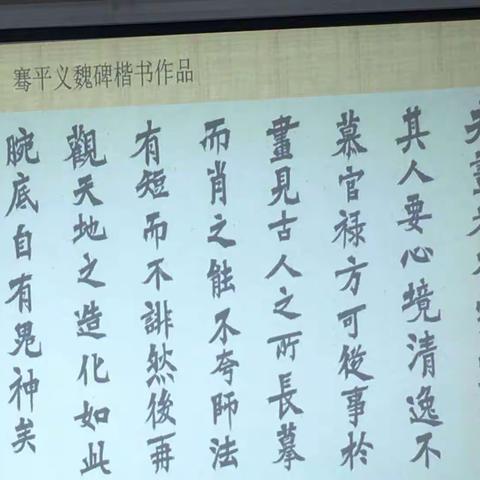 骞平义魏碑楷书作品
夫畫者
其人要心境清逸不
慕官禄方可從事於
畫見古人之所長摹
而肖之能不夸師法
有短而不誹然後再
觀天地之造化如此
腕底自有鬼神矣